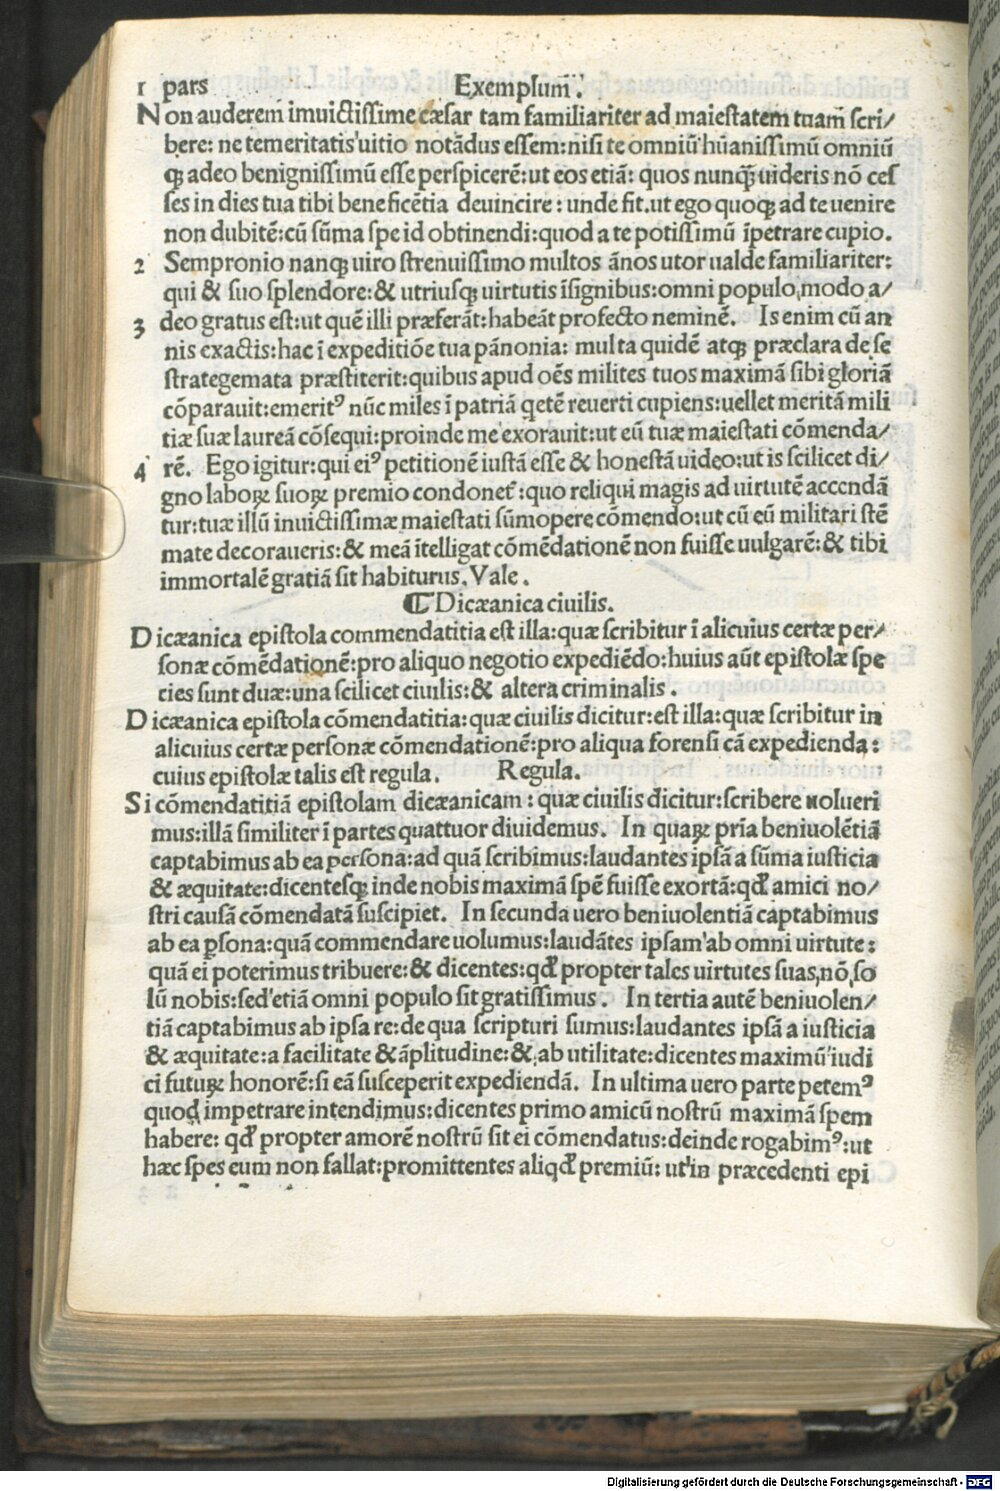 1 pars Exemplum.
Non auderem imuictissime cæsar tam familiariter ad maiestatem tuam scri/
bere: ne temeritatis uitio notãdus essem:nisi te omniũ hũanissimũ omniũ
qꝫ adeo benignissimũ esse perspicerẽ:ut eos etiã: quos nunqꝫ uideris nõ ces
ses in dies tua tibi beneficẽtia deuincire: unde fit.ut ego quoqꝫ ad te uenire
non dubitẽ:cũ sũma spe id obtinendi:quod a te potissimũ ĩpetrare cupio.
2 Sempronio nanqꝫ uiro strenuissimo multos ãnos utor ualde familiariter:
qui & suo splendore:& utriusqꝫ uirtutis ĩsignibus:omni populo modo a/
3 deo gratus est:ut quẽ illi præferãt:habeãt profecto neminẽ. Is enim cũ an
nis exactis:hac ĩ expeditiõe tua pãnonia: multa quidẽ atqꝫ præclara de se
strategemata præstiterit:quibus apud oẽs milites tuos maximã sibi gloriã
cõparauit:emeritꝰ nũc miles ĩ patriã qetẽ reuerti cupiens:uellet meritã mili
tiæ suæ laureã cõsequi:proinde me exorauit:ut eũ tuæ maiestati cõmenda/
4 rẽ. Ego igitur:qui eiꝰ petitionẽ iustã esse & honestã uideo:ut is scilicet di/
gno laboꝝ suoꝝ premio condonet̃:quo reliqui magis ad uirtutẽ accendã
tur:tuæ illũ inuictissimæ maiestati sũmopere cõmendo:ut cũ eũ militari stẽ
mate decoraueris:& meã ĩtelligat cõmẽdationẽ non fuisse uulgarẽ:& tibi
immortalẽ gratiã sit habiturus. Vale.
⁋ Dicæanica ciuilis.
Dicæanica epistola commendatitia est illa:quæ scribitur ĩ alicuius certæ per/
sonæ cõmẽdationẽ:pro aliquo negotio expediẽdo:huius aũt epistolæ spe
cies sunt duæ:una scilicet ciuilis:& altera criminalis.
Dicæanica epistola cõmendatitia:quæ ciuilis dicitur:est illa:quæ scribitur in
alicuius certæ personæ cõmendationẽ:pro aliqua forensi cã expedienda:
cuius epistolæ talis est regula. Regula.
Si cõmendatitiã epistolam dicæanicam: quæ ciuilis dicitur:scribere uolueri
mus:illã similiter ĩ partes quattuor diuidemus. In quaꝝ prĩa beniuolẽtiã
captabimus ab ea persona:ad quã scribimus:laudantes ipsã a sũma iusticia
& æquitate:dicentesqꝫ inde nobis maximã spẽ fuisse exortã:qđ amici no/
stri causã cõmendatã suscipiet. In secunda uero beniuolentiã captabimus
ab ea ꝑsona:quã commendare uolumus:laudãtes ipsam ab omni uirtute:
quã ei poterimus tribuere:& dicentes:qđ propter tales uirtutes suas,nõ so
lũ nobis:sed etiã omni populo sit gratissimus. In tertia autẽ beniuolen/
tiã captabimus ab ipsa re:de qua scripturi sumus:laudantes ipsã a iusticia
& æquitate:a facilitate & ãplitudine:& ab utilitate:dicentes maximũ iudi
ci futuꝝ honorẽ:si eã susceperit expediendã. In ultima uero parte petemꝰ
quod impetrare intendimus:dicentes primo amicũ nostrũ maximã spem
habere: qđ propter amorẽ nostrũ sit ei cõmendatus:deinde rogabimꝰ:ut
hæc spes eum non fallat:promittentes aliqđ premiũ: ut in præcedenti epi
Digitalisierung gefördert durch die Deutsche Forschungsgemeinschaft - DFG